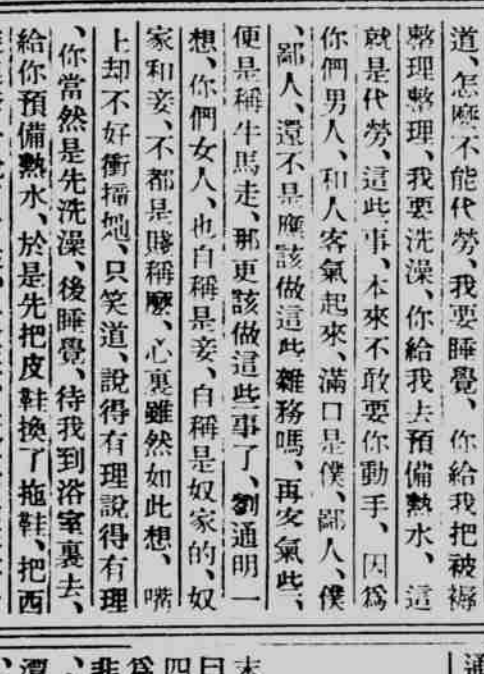 道、怎麽不能代勞、我要睡覺、你給我把被褥
整理整理、我要洗澡、你給我去預備熱水、這
就是代勞、這些事、本來不敢要你動手、因爲
你們男人、和人客氣起來、滿口是僕、鄙人、僕
、鄙人、還不是應該做這些雜務嗎、再客氣些、
便是稱牛馬走、那更該做這些事了、劉通明一
想、你們女人、也自稱是妾、自稱是奴家的、奴
家和妾、不都是賤稱麽、心裏雖然如此想、嘴
上却不好衝撞她、只笑道、說得有理說得有理
、你當然是先洗澡、後睡覺、待我到浴室裏去、
給你預備熱水、於是先把皮鞋換了拖鞋、把西
通
末
日
四
爲
非